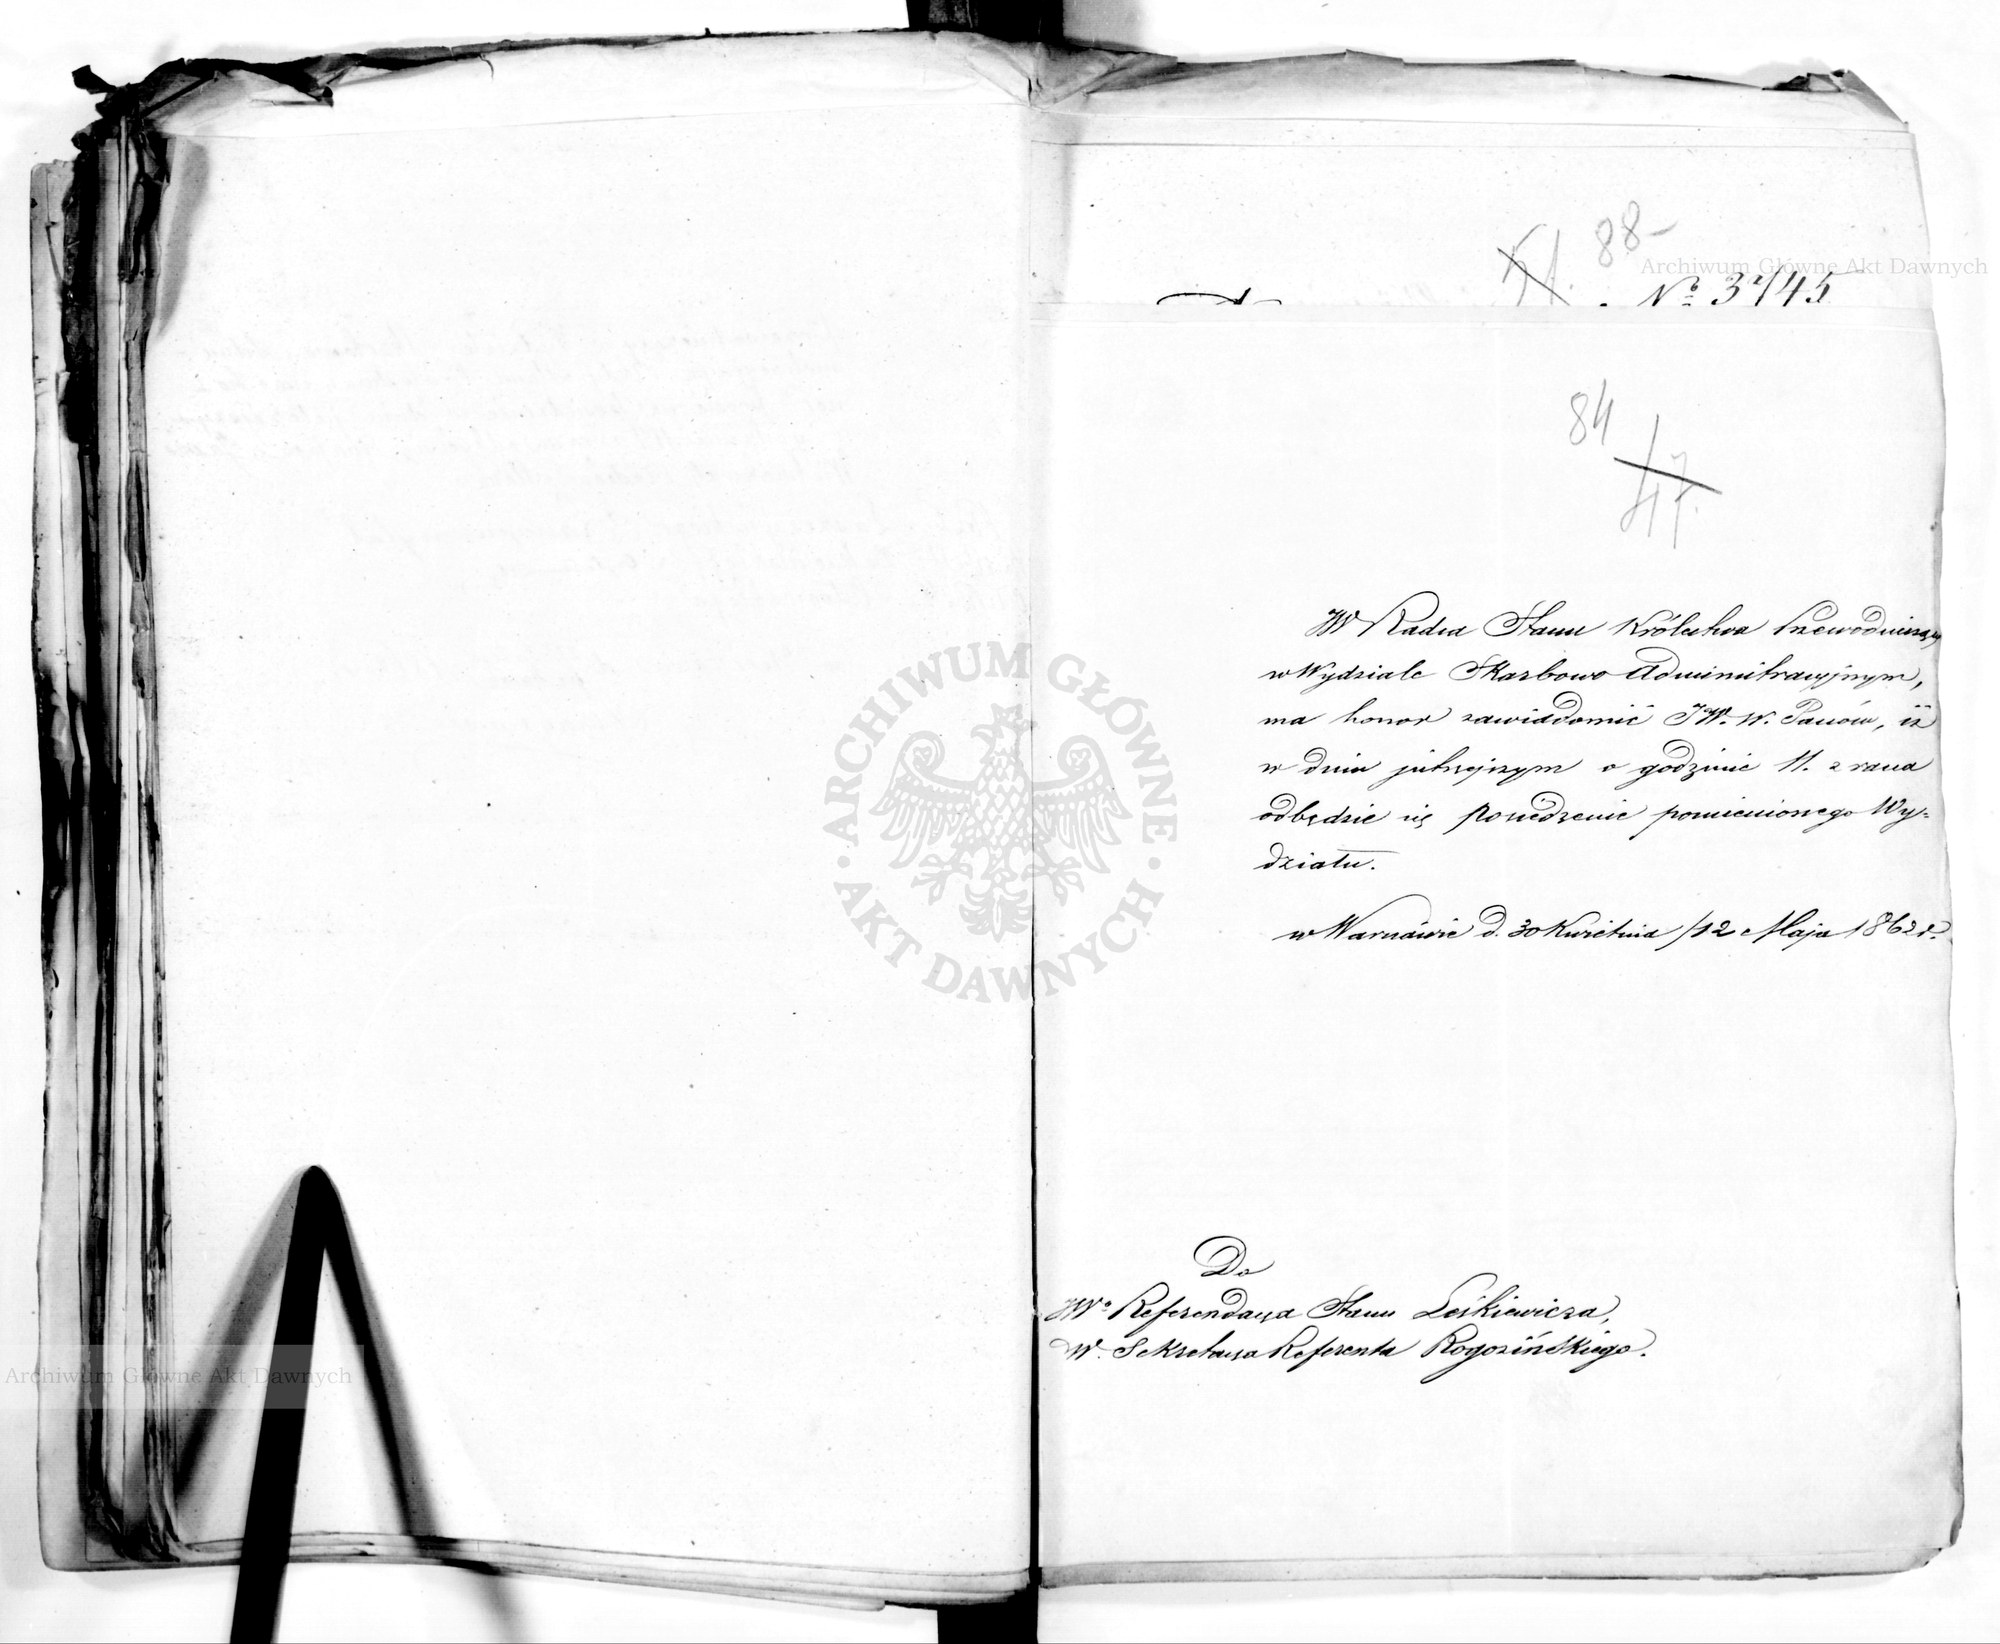 51. 88-
Archiwum Główne Akt Dawnych
No 3745
84
47.
W Radzie Stanu Królestwa Przewodniczący
w Wydziale Skarbowo Administracyjnym,
ma honor zawiadomić JW. W. Panów, iż
w dniu jutrzejszym o godzinie 11. z rana
odbędzie się Posiedzenie pomienionego Wy=
działu.
w Warszawie d. 30 Kwietnia /12 Maja 1862 r.
ARCHIWUM GŁÓWNE
AKT DAWNYCH
Do
JWo Referendarza Stanu Leśkiewicza,
W. Sekretarza Referenta Rogozińskiego.
Archiwum Główne Akt Dawnych